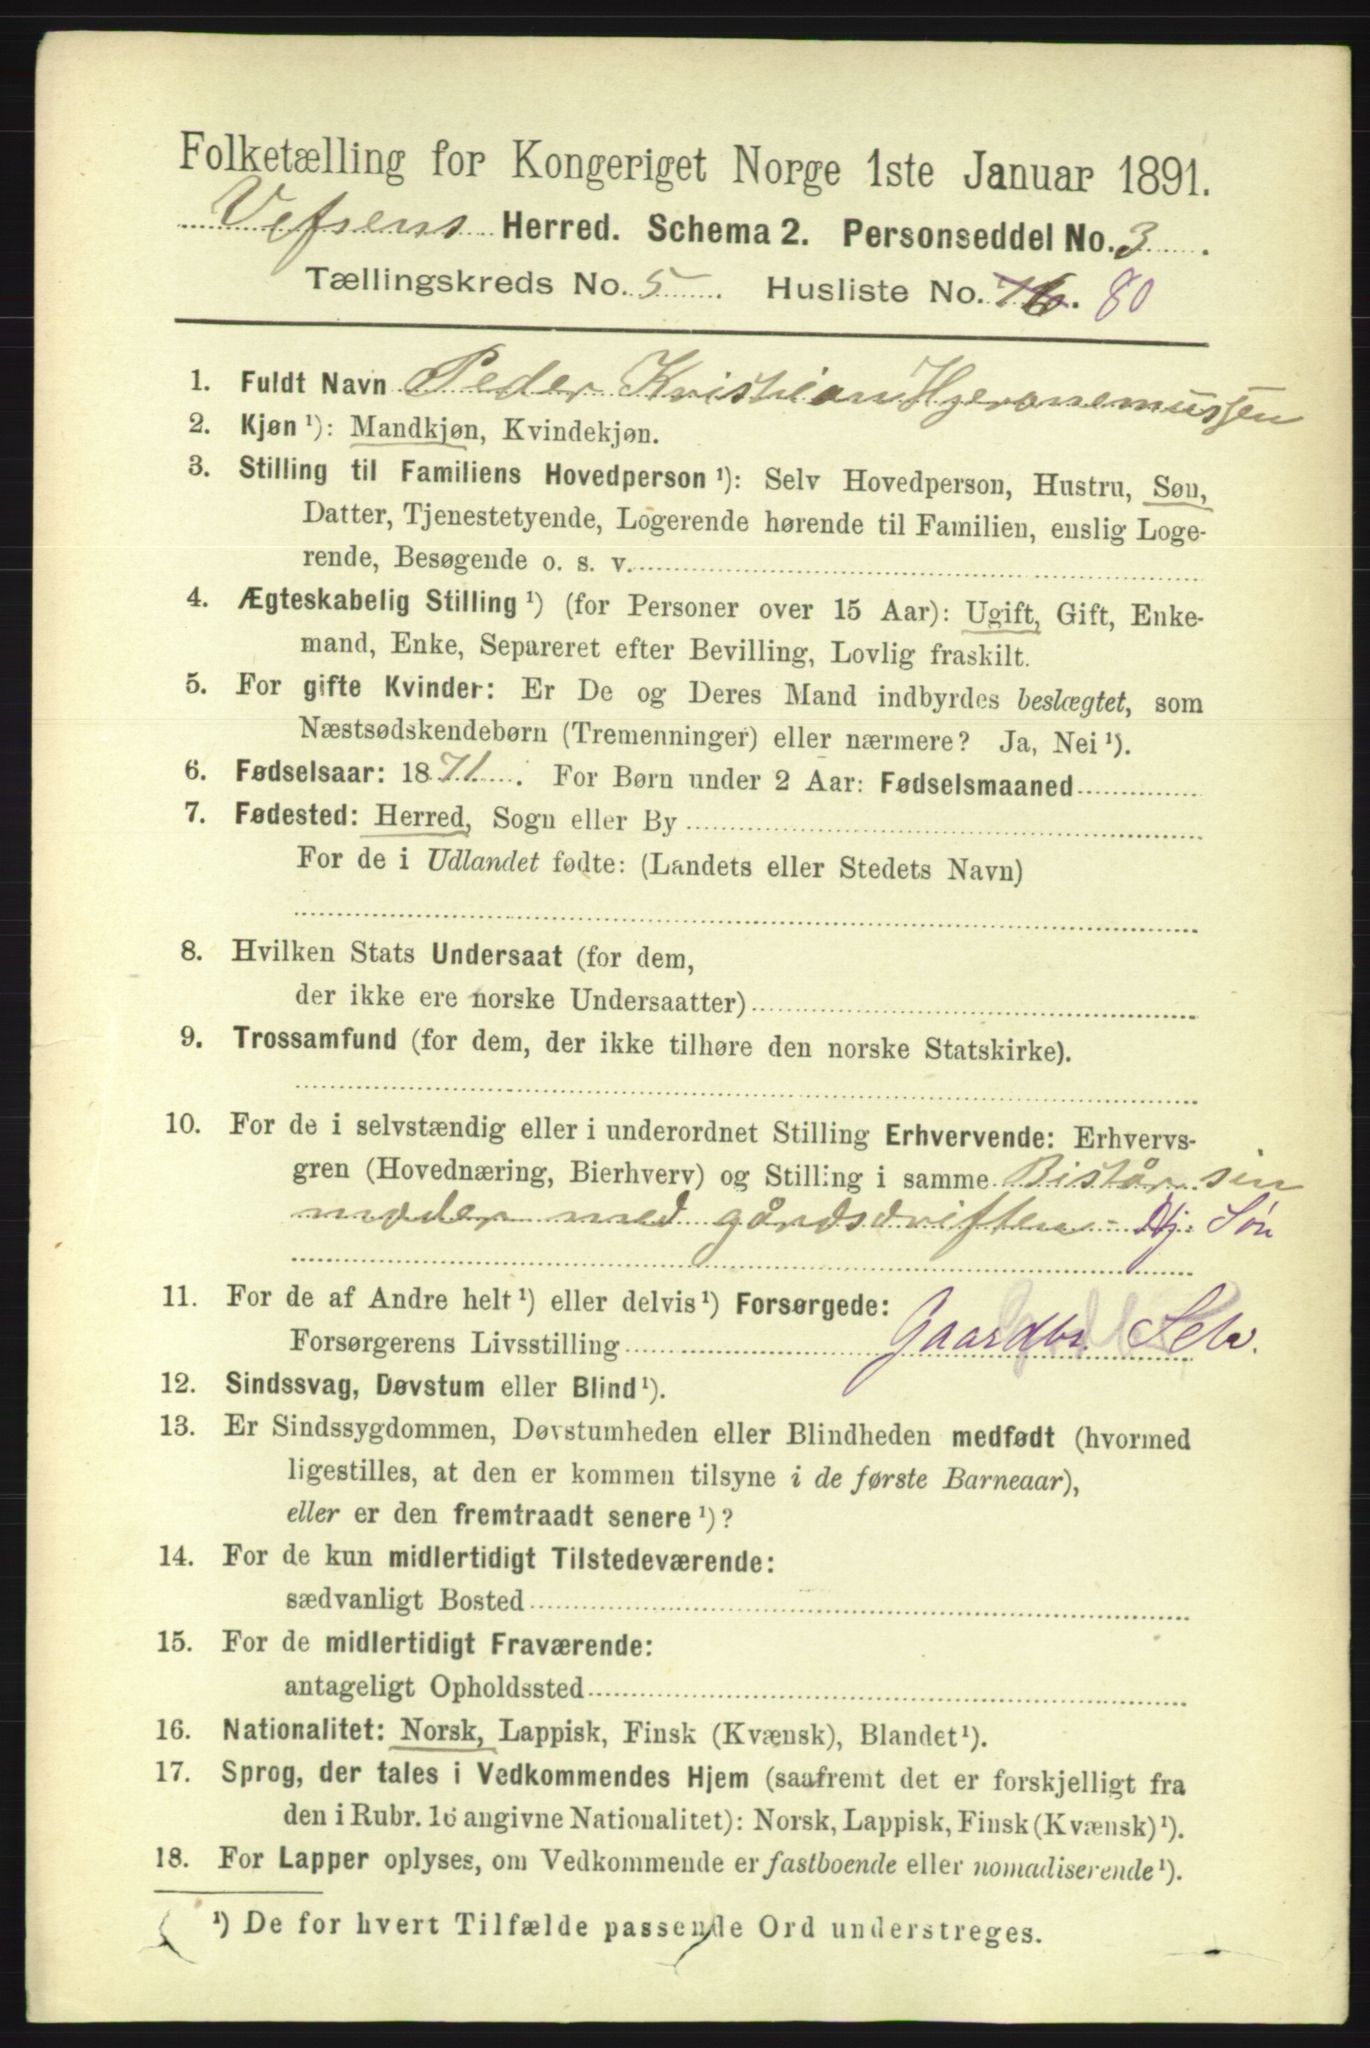 Folketælling for Kongeriget Norge 1ste Januar 1891.
Vefsens Herred. Schema 2. Personseddel No. 3.
Tællingskreds No. 5. Husliste No. 76. 80
1. Fuldt Navn Peder Kristian Hyeronemussen
2. Kjøn ¹): Mandkjøn, Kvindekjøn.
3. Stilling til Familiens Hovedperson ¹): Selv Hovedperson, Hustru, Søn,
Datter, Tjenestetyende, Logerende hørende til Familien, enslig Loge-
rende, Besøgende o. s. v.
4. Ægteskabelig Stilling ¹) (for Personer over 15 Aar): Ugift, Gift, Enke-
mand, Enke, Separeret efter Bevilling, Lovlig fraskilt.
5. For gifte Kvinder: Er De og Deres Mand indbyrdes beslægtet, som
Næstsødskendebørn (Tremenninger) eller nærmere? Ja, Nei ¹).
6. Fødselsaar: 1871. For Børn under 2 Aar: Fødselsmaaned
7. Fødested: Herred, Sogn eller By
For de i Udlandet fødte: (Landets eller Stedets Navn)
8. Hvilken Stats Undersaat (for dem,
der ikke ere norske Undersaatter)
9. Trossamfund (for dem, der ikke tilhøre den norske Statskirke).
10. For de i selvstændig eller i underordnet Stilling Erhvervende: Erhvervs-
gren (Hovednæring, Bierhverv) og Stilling i samme Bistår sin
moder med gårdsdriften - Hj. Søn
11. For de af Andre helt ¹) eller delvis ¹) Forsørgede:
Forsørgerens Livsstilling Gaardbr. Selv.
12. Sindssvag, Døvstum eller Blind ¹).
13. Er Sindssygdommen, Døvstumheden eller Blindheden medfødt (hvormed
ligestilles, at den er kommen tilsyne i de første Barneaar),
eller er den fremtraadt senere ¹)?
14. For de kun midlertidigt Tilstedeværende:
sædvanligt Bosted
15. For de midlertidigt Fraværende:
antageligt Opholdssted
16. Nationalitet: Norsk, Lappisk, Finsk (Kvænsk), Blandet ¹).
17. Sprog, der tales i Vedkommendes Hjem (saafremt det er forskjelligt fra
den i Rubr. 16 angivne Nationalitet): Norsk, Lappisk, Finsk (Kvænsk) ¹).
18. For Lapper oplyses, om Vedkommende er fastboende eller nomadiserende ¹).
¹) De for hvert Tilfælde passende Ord understreges.